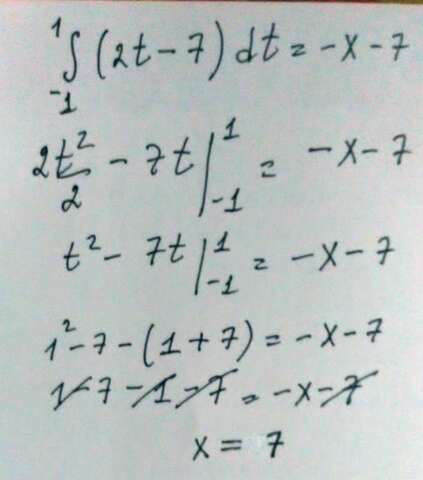 ∫₋₁¹ (2t − 7) dt = −x − 7
2t²/2 − 7t |₋₁¹ = −x − 7
t² − 7t |₋₁¹ = −x − 7
1² − 7 − (1 + 7) = −x − 7
1 − 7 − 1 − 7 = −x − 7
x = 7